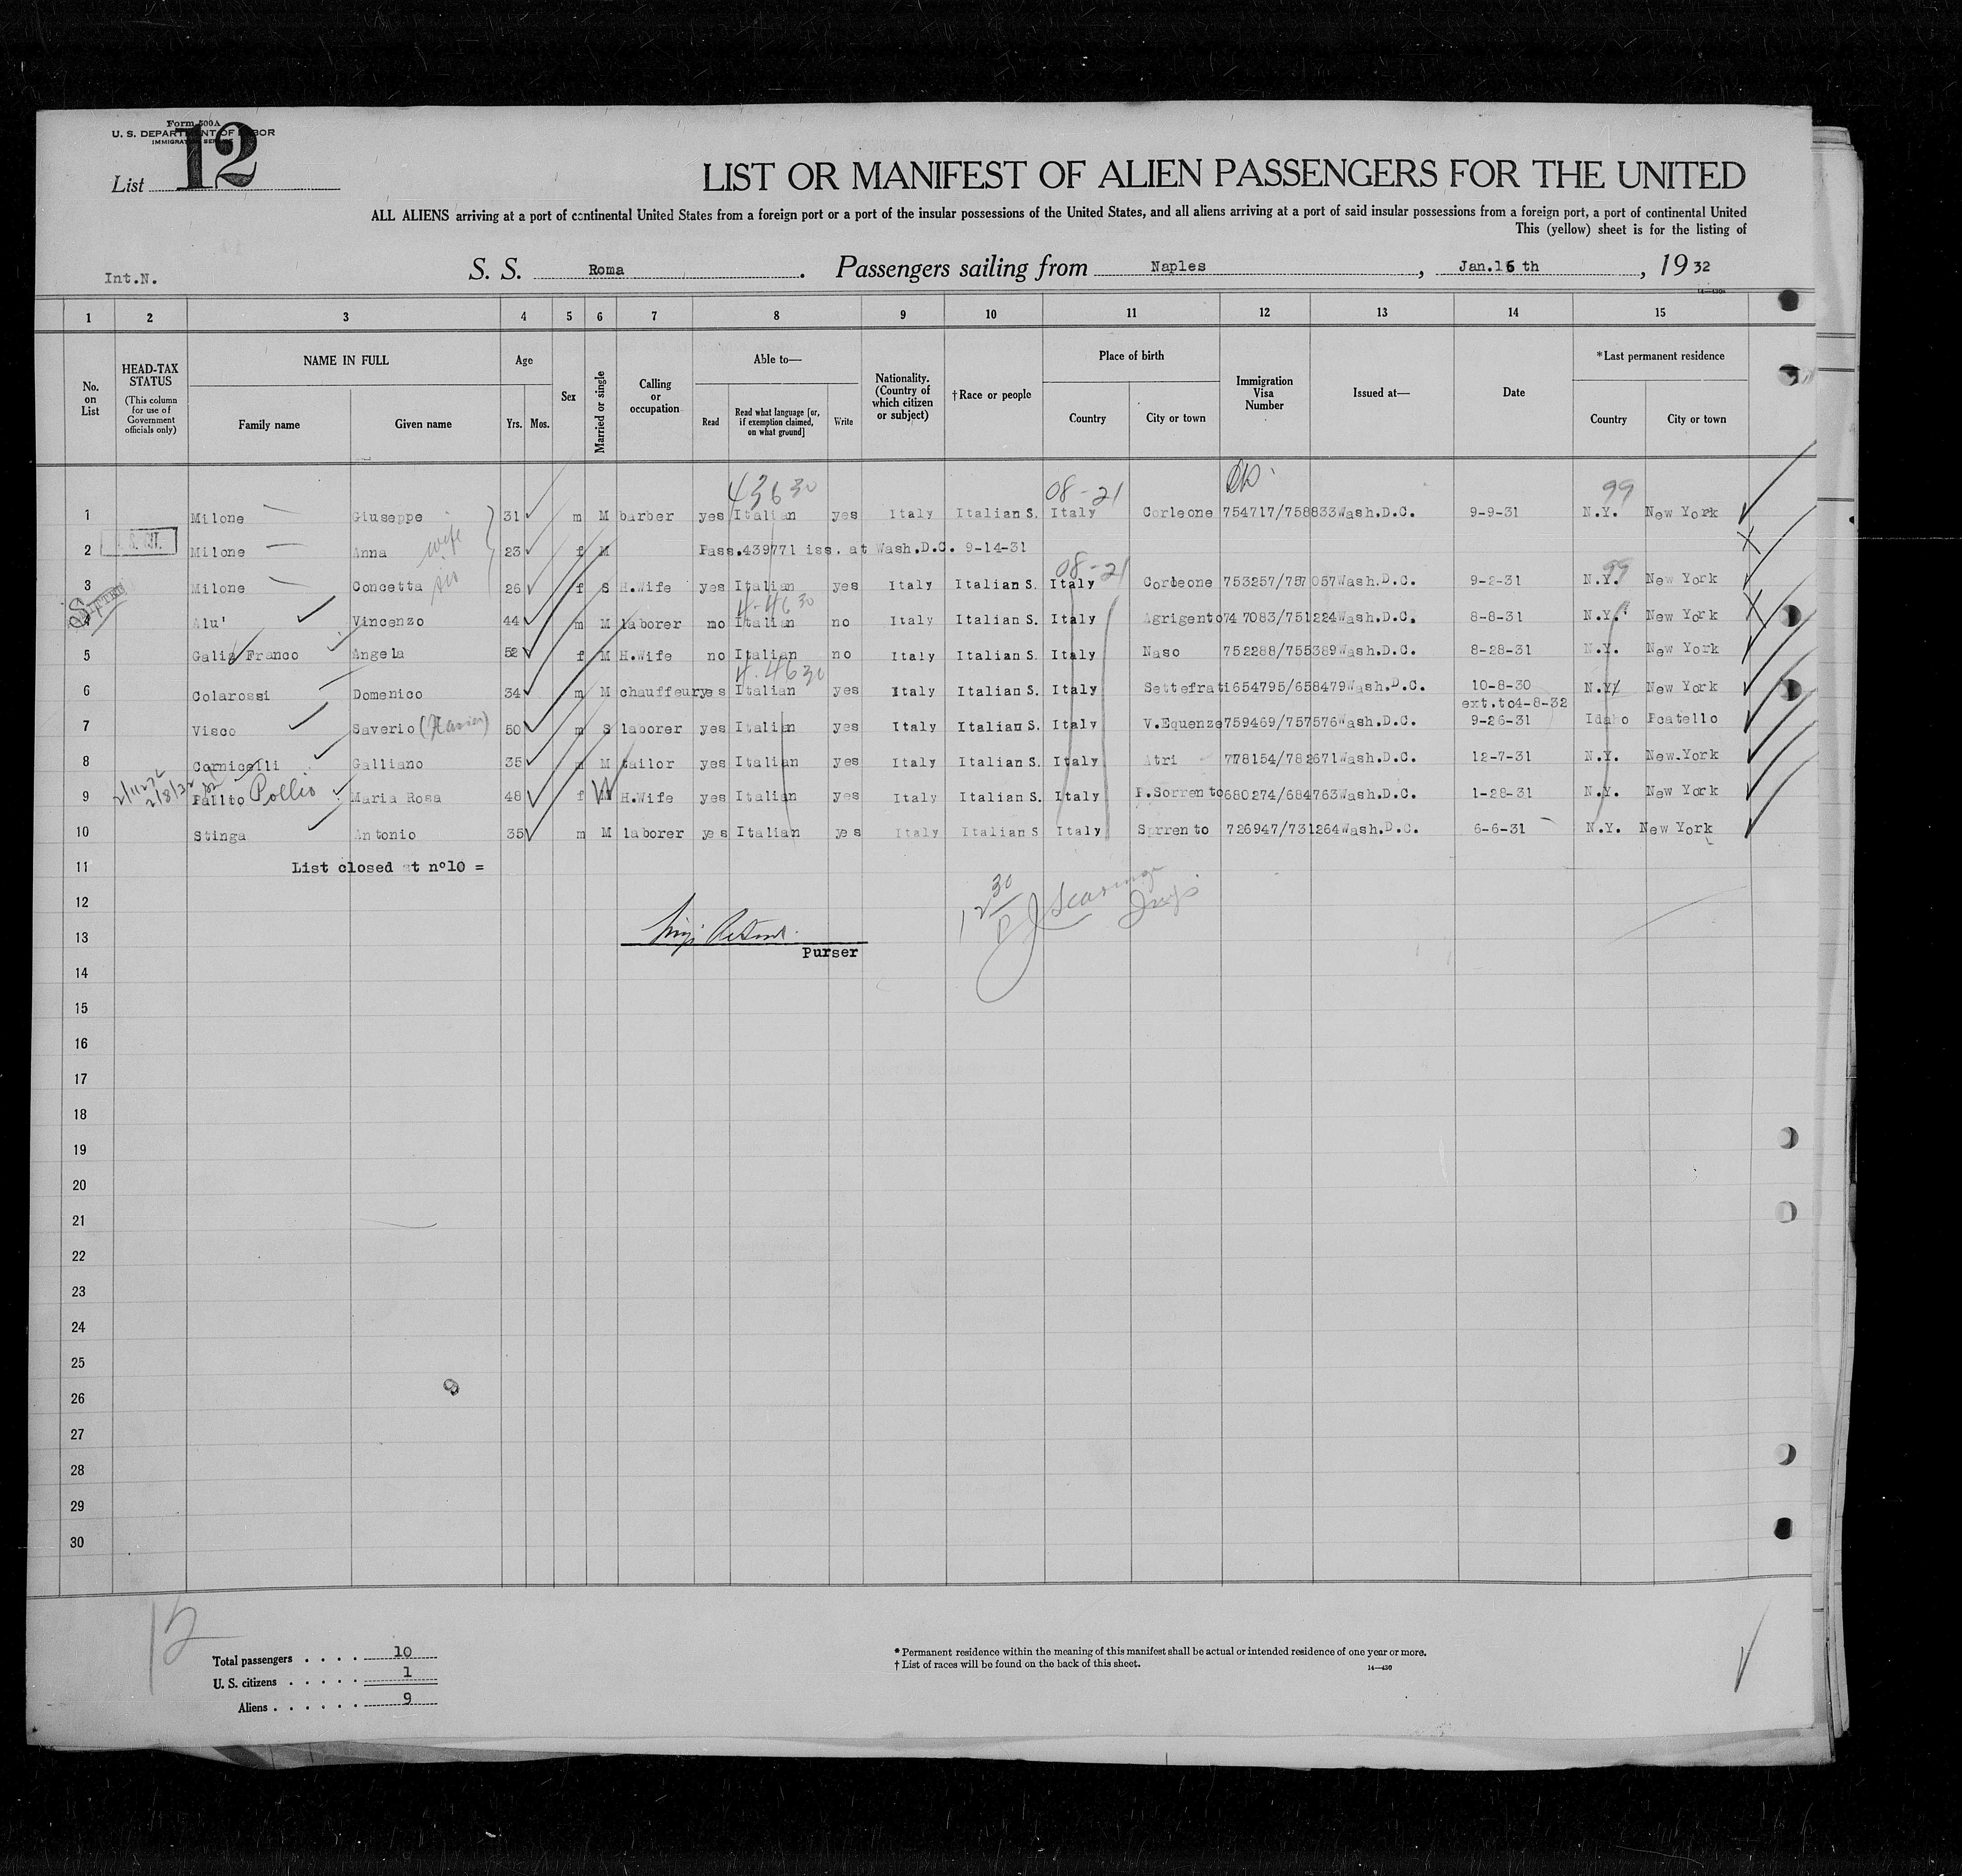 Form 500A
U. S. DEPARTMENT OF LABOR
IMMIGRATION SERVICE
List 12
LIST OR MANIFEST OF ALIEN PASSENGERS FOR THE UNITED
ALL ALIENS arriving at a port of continental United States from a foreign port or a port of the insular possessions of the United States, and all aliens arriving at a port of said insular possessions from a foreign port, a port of continental United
This (yellow) sheet is for the listing of
Int.N. S. S. Roma. Passengers sailing from Naples, Jan.16 th, 1932
1 2 3 4 5 6 7 8 9 10 11 12 13 14 15
No. on List
HEAD-TAX STATUS
(This column for use of Government officials only)
NAME IN FULL
Family name Given name
Age
Yrs. Mos.
Sex
Married or single
Calling or occupation
Able to—
Read Read what language [or, if exemption claimed, on what ground] Write
Nationality. (Country of which citizen or subject)
†Race or people
Place of birth
Country City or town
Immigration Visa Number
Issued at—
Date
*Last permanent residence
Country City or town
43630 08-21 99
1 Milone Giuseppe 31 m M barber yes Italian yes Italy Italian S. Italy Corleone 754717/758833 Wash.D.C. 9-9-31 N.Y. New York
2 Milone Anna wife 23 f M Pass.439771 iss. at Wash.D.C. 9-14-31
08-21 99
3 Milone Concetta sis 26 f S H.Wife yes Italian yes Italy Italian S. Italy Corleone 753257/757057 Wash.D.C. 9-2-31 N.Y. New York
4-4630
4 Alu' Vincenzo 44 m M laborer no Italian no Italy Italian S. Italy Agrigento 747083/751224 Wash.D.C. 8-8-31 N.Y. New York
5 Galia Franco Angela 52 f M H.Wife no Italian no Italy Italian S. Italy Naso 752288/755389 Wash.D.C. 8-28-31 N.Y. New York
4-4630
6 Colarossi Domenico 34 m M chauffeur yes Italian yes Italy Italian S. Italy Settefrati 654795/658479 Wash.D.C. 10-8-30 N.Y. New York
ext.to4-8-32
7 Visco Saverio (Xavier) 50 m S laborer yes Italian yes Italy Italian S. Italy V.Equenze 759469/757576 Wash.D.C. 9-26-31 Idaho Pcatello
8 Cornicelli Galliano 35 m M tailor yes Italian yes Italy Italian S. Italy Atri 778154/782671 Wash.D.C. 12-7-31 N.Y. New.York
9 Pallto Pollio Maria Rosa 48 f M W H.Wife yes Italian yes Italy Italian S. Italy P.Sorrento 680274/684763 Wash.D.C. 1-28-31 N.Y. New York
10 Stinga Antonio 35 m M laborer yes Italian yes Italy Italian S Italy Sorrento 726947/731264 Wash.D.C. 6-6-31 N.Y. New York
11 List closed at n°10 =
12
13
Purser
14
15
16
17
18
19
20
21
22
23
24
25
26
27
28
29
30
12
Total passengers . . . . 10
U. S. citizens . . . . . 1
Aliens . . . . . . 9
* Permanent residence within the meaning of this manifest shall be actual or intended residence of one year or more.
† List of races will be found on the back of this sheet.
14—430